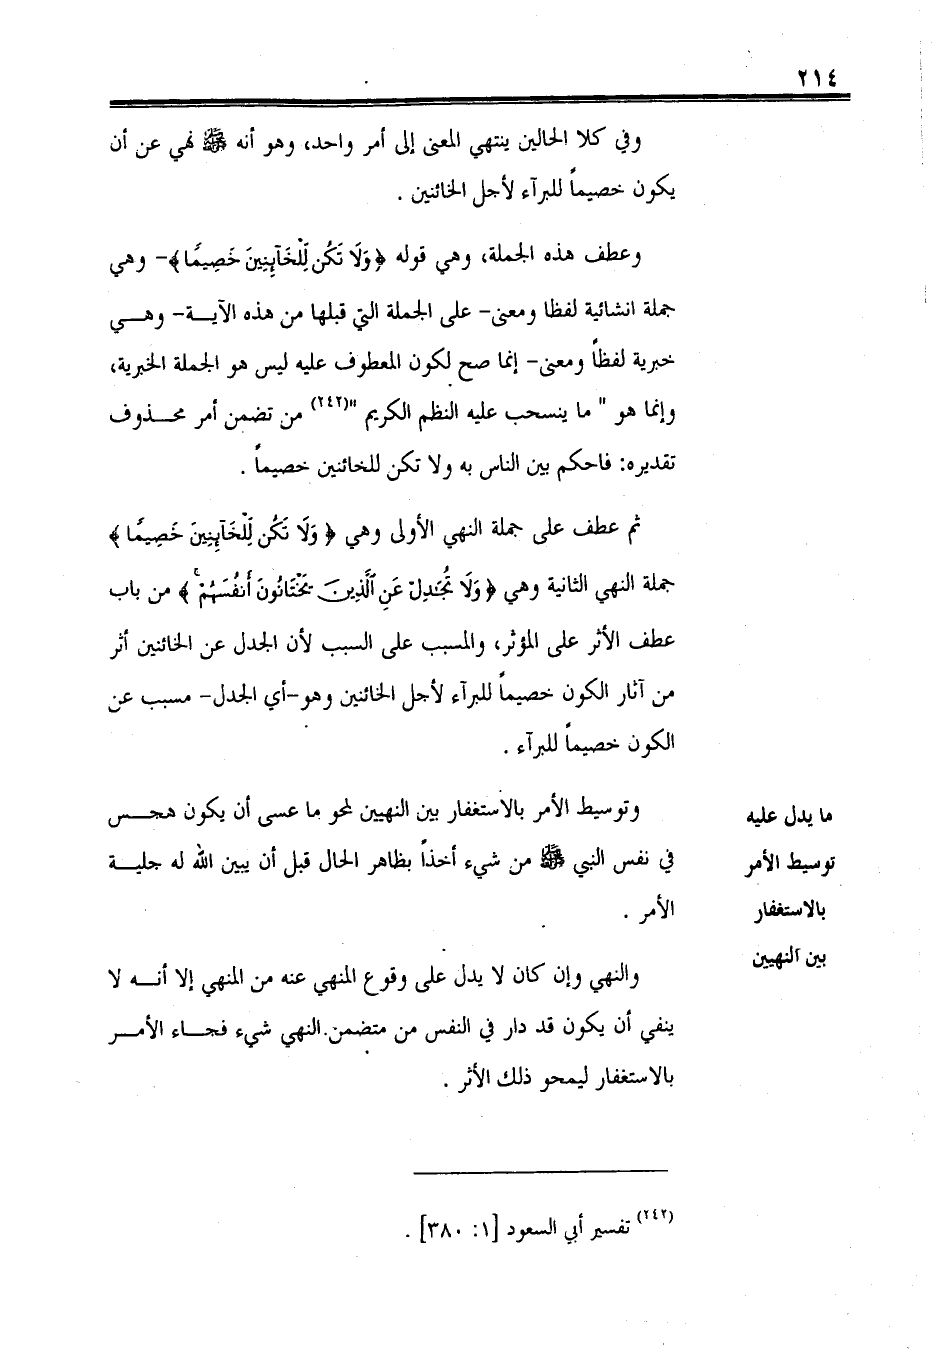 ٢١٤
وفي كلا الحالين ينتهي المعنى إلى أمر واحد، وهو أنه ﷺ نهي عن أن
يكون خصيماً للبرآء لأجل الخائنين .
وعطف هذه الجملة، وهي قوله ﴿وَلَا تَكُن لِّلْخَآئِنِينَ خَصِيمًا﴾- وهي
جملة انشائية لفظا ومعنى- على الجملة التي قبلها من هذه الآيـــة- وهــي
خبرية لفظاً ومعنى- إنما صح لكون المعطوف عليه ليس هو الجملة الخبرية،
وإنما هو " ما ينسحب عليه النظم الكريم "(٢٤٢) من تضمن أمر محـــذوف
تقديره: فاحكم بين الناس به ولا تكن للخائنين خصيماً .
ثم عطف على جملة النهي الأولى وهي ﴿ وَلَا تَكُن لِّلْخَآئِنِينَ خَصِيمًا ﴾
جملة النهي الثانية وهي ﴿ وَلَا تُجَٰدِلْ عَنِ ٱلَّذِينَ يَخْتَانُونَ أَنفُسَهُمْ ۚ ﴾ من باب
عطف الأثر على المؤثر، والمسبب على السبب لأن الجدل عن الخائنين أثر
من آثار الكون خصيماً للبرآء لأجل الخائنين وهو-أي الجدل- مسبب عن
الكون خصيماً للبرآء .
وتوسيط الأمر بالاستغفار بين النهيين لمحو ما عسى أن يكون هجــس
في نفس النبي ﷺ من شيء أخذاً بظاهر الحال قبل أن يبين الله له جليــة
الأمر .
ما يدل عليه
توسيط الأمر
بالاستغفار
بين النهيين
والنهي وإن كان لا يدل على وقوع المنهي عنه من المنهي إلا أنـــه لا
ينفي أن يكون قد دار في النفس من متضمن النهي شيء فجـــاء الأمـــر
بالاستغفار ليمحو ذلك الأثر .
(٢٤٢) تفسير أبي السعود [١: ٣٨٠] .